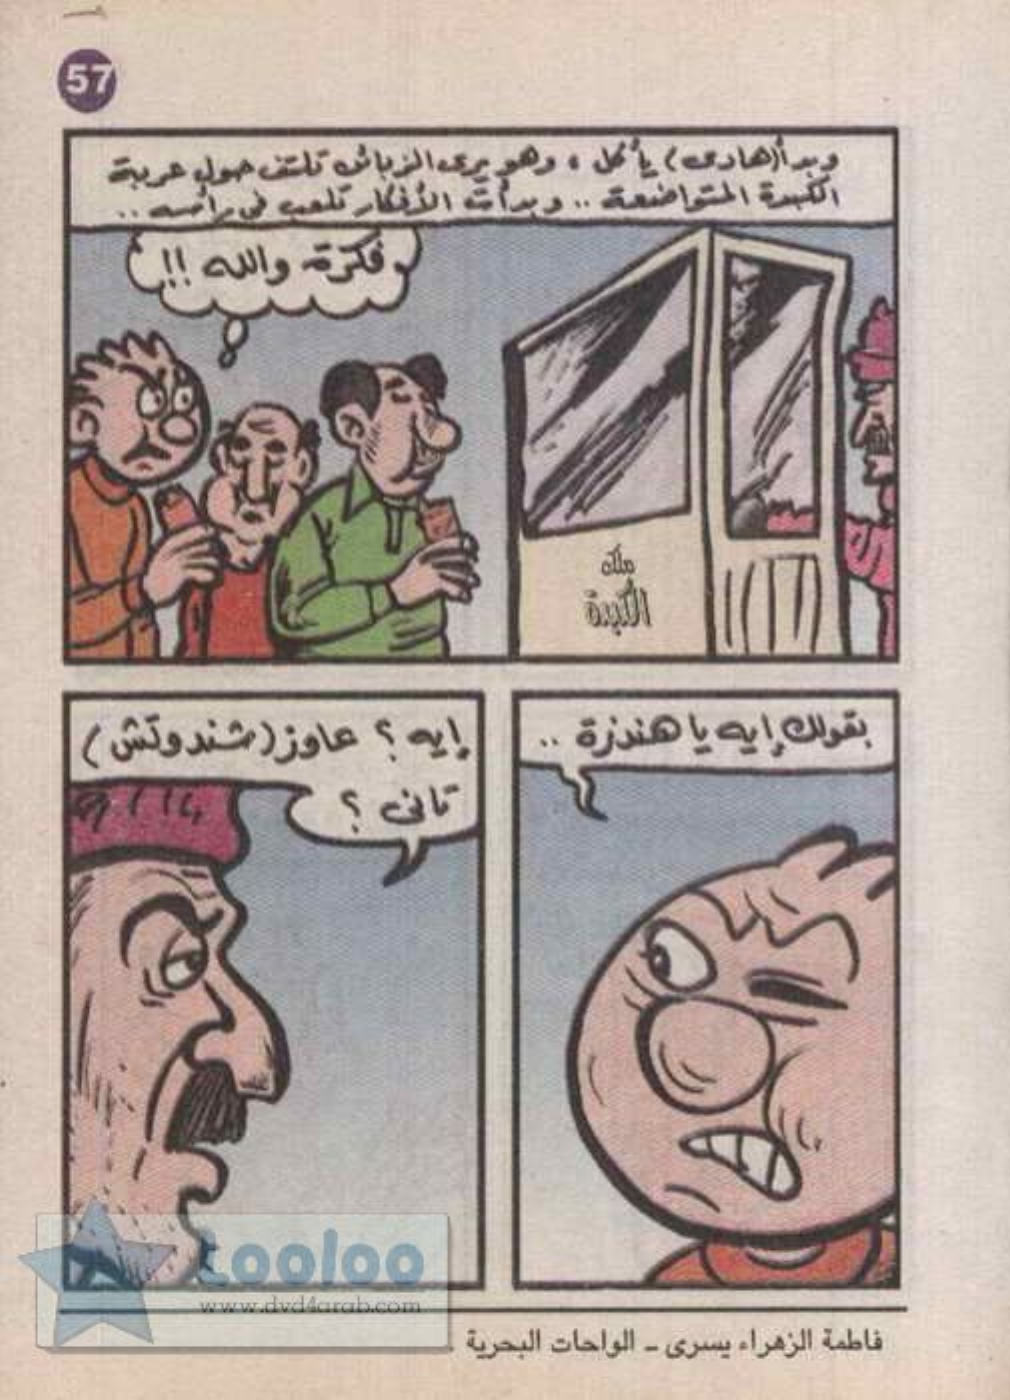 57
وبدأ (هادى) يأكل ، وهو يرى الزبائن تلتف حول عربية
الكبدة المتواضعة .. وبدأت الأفكار تلعب فى رأسه ..
فكرة والله !!
ملك
الكبدة
بقولك إيه يا هندزة ..
إيه ؟ عاوز (شندوتش)
تانى ؟
Looloo
www.dvd4arab.com
فاطمة الزهراء يسرى - الواحات البحرية .